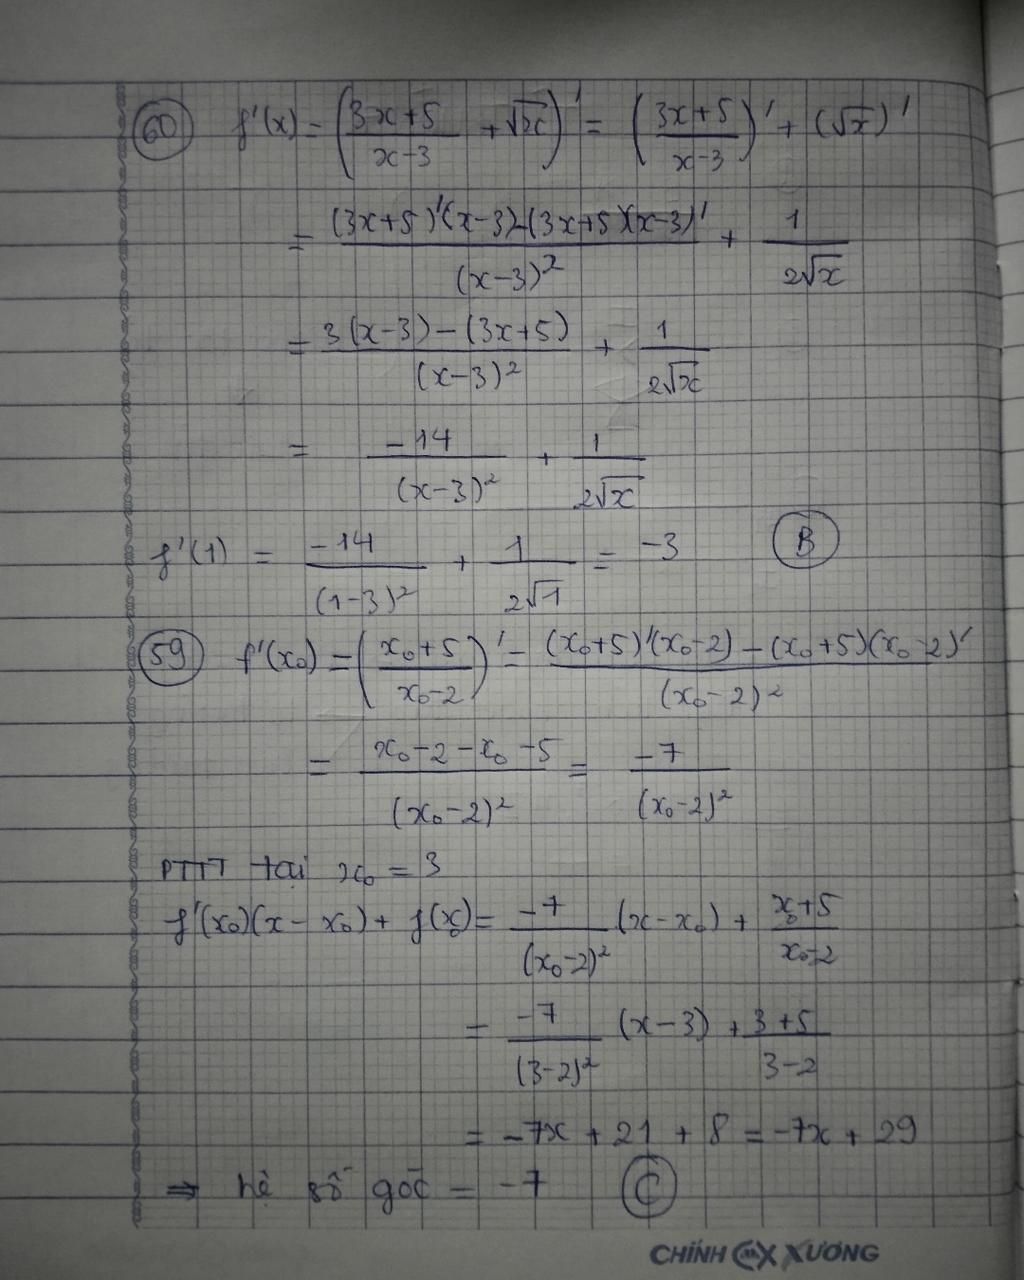 60 f'(x) = ((3x+5)/(x-3) + √x)' = ((3x+5)/(x-3))' + (√x)'
= ((3x+5)'(x-3)-(3x+5)(x-3)')/(x-3)² + 1/(2√x)
= (3(x-3)-(3x+5))/(x-3)² + 1/(2√x)
= -14/(x-3)² + 1/(2√x)
f'(1) = -14/(1-3)² + 1/(2√1) = -3 B
59 f'(x₀) = ((x₀+5)/(x₀-2))' = ((x₀+5)'(x₀-2)-(x₀+5)(x₀-2)')/(x₀-2)²
= (x₀-2-x₀-5)/(x₀-2)² = -7/(x₀-2)²
PTTT tại x₀ = 3
f'(x₀)(x-x₀) + f(x₀) = -7/(x₀-2)² (x-x₀) + (x₀+5)/(x₀-2)
= -7/(3-2)² (x-3) + (3+5)/(3-2)
= -7x + 21 + 8 = -7x + 29
⇒ hệ số góc = -7 C
CHÍNH XƯƠNG